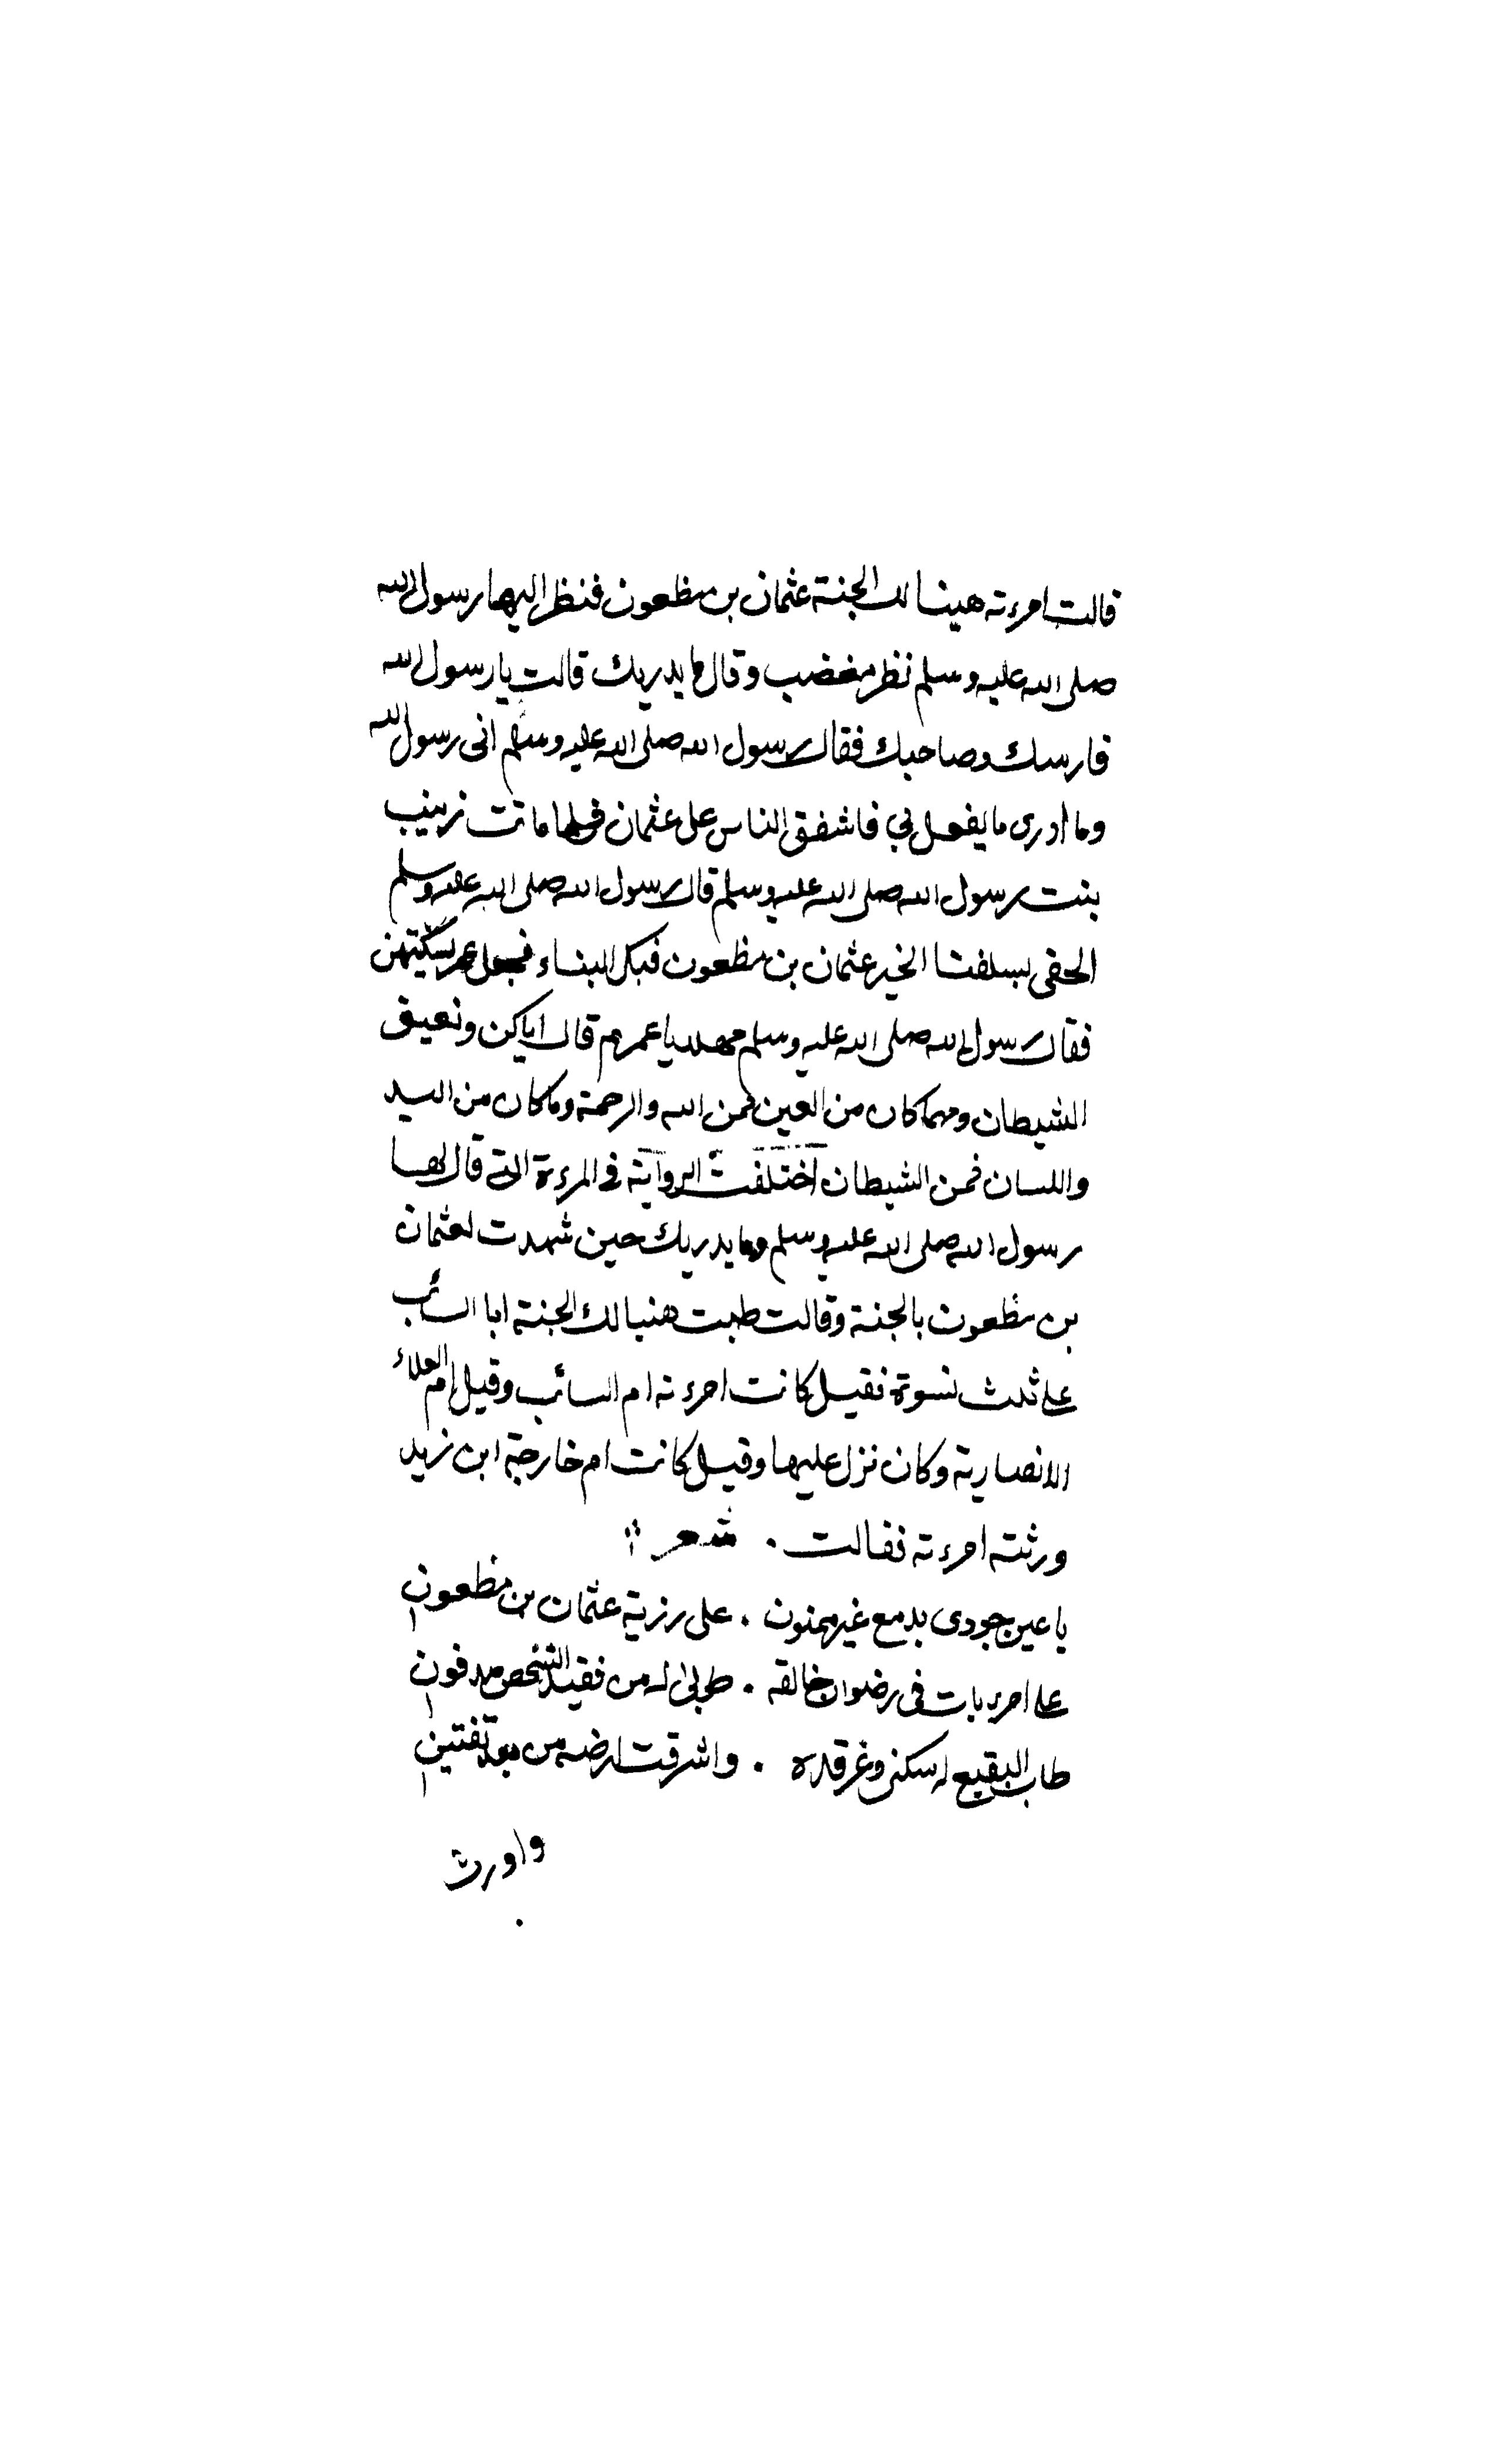 قالت امرءته هينا لك الجنة عثمان بن مظعون فنظر اليها رسول الله
صلى الله عليه وسلم نظر مغضب وقال ما يدريك قالت يا رسول الله
فارسك وصاحبك فقال رسول الله صلى الله عليه وسلم انى رسول الله
وما ادرى ما يفعل بي فاشفق الناس على عثمان فلما ماتت زينب
بنت رسول الله صلى الله عليه وسلم قال رسول الله صلى الله عليه وسلم
الحقى بسلفنا الخير عثمان بن مظعون فبكى النساء فجعل عمر يسكتهن
فقال رسول الله صلى الله عليه وسلم مهلا يا عمر ثم قال اياكن ونعيق
الشيطان ومهما كان من العين فمن الله والرحمة وما كان من اليد
واللسان فمن الشيطان اختلفت الرواية فى المرءة التى قال لها
رسول الله صلى الله عليه وسلم وما يدريك حين شهدت لعثمان
بن مظعون بالجنة وقالت طبت هنيا لك الجنة ابا السائب
على ثلث نسوة فقيل كانت امرءته ام السائب وقيل ام العلاء
الانصارية وكان نزل عليها وقيل كانت ام خارجة ابن زيد
ورثته امرءته فقالت . شعر
يا عين جودى بدمع غير ممنون . على رزية عثمان بن مظعون
على امرء بات فى رضوان خالقه . طوبى له من فقيد الشخص مدفون
طاب البقيع له سكنى وغرقده . واشرقت ارضه من بعد تفتين
واورث